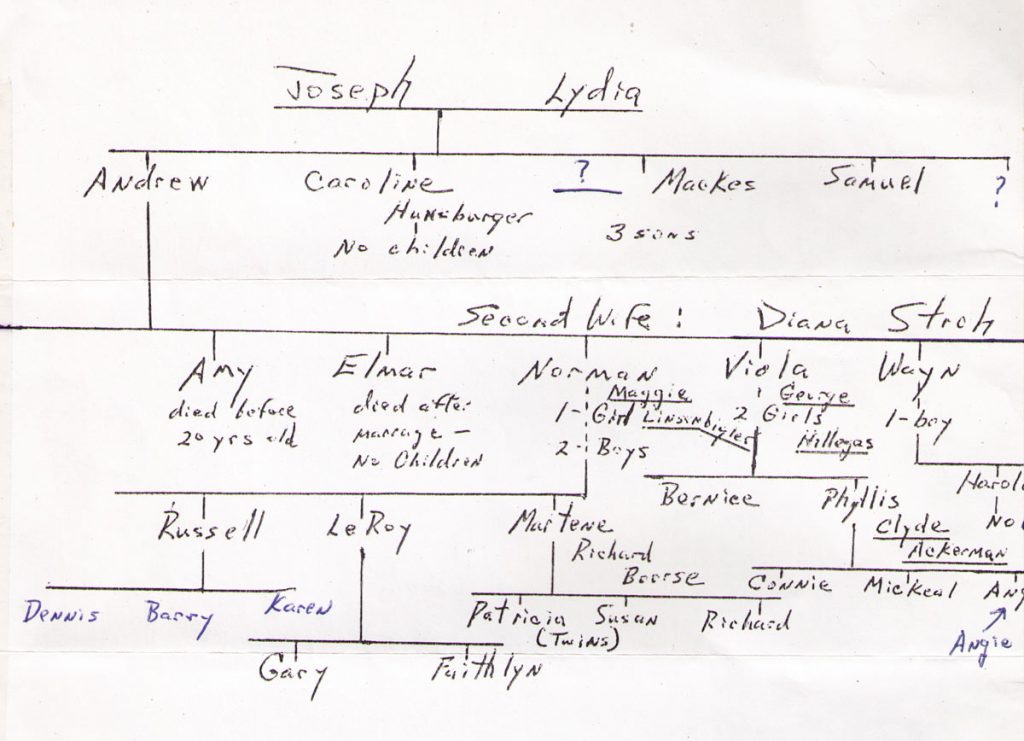 Joseph Lydia
Andrew Caroline ? Mackes Samuel ?
Hunsburger
No children 3 sons
Second Wife : Diana Stroh
Amy Elmar Norman Viola Wayn
died before died after Maggie George
20 yrs old marrage - 1- Girl Linsenbigler 2 Girls 1-boy
No Children 2- Boys Hillegas
Bernice Phyllis Harol
Russell LeRoy Martene Clyde No
Richard Ackerman
Boorse Connie Mickeal Ang
Dennis Barry Karen Patricia Susan Richard
(Twins) Angie
Gary Faithlyn